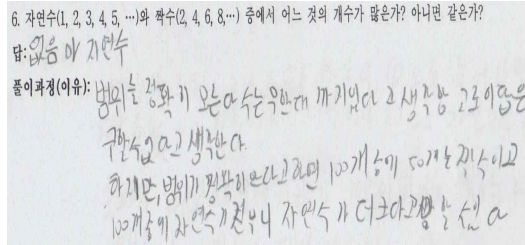 6. 자연수(1, 2, 3, 4, 5, ⋯)와 짝수(2, 4, 6, 8,⋯) 중에서 어느 것의 개수가 많은가? 아니면 같은가?
답: 없음 아 자연수
풀이과정(이유): 범위를 정확히 모른다 수는 무한대 까지있다고 생각함 고로 이 답은
구할수없다고 생각한다.
하지만, 범위가 정확히 있다고하면 100개중에 50개는 짝수이고
100개중에 자연수가 전부니 자연수가 더크다고 할 수있다